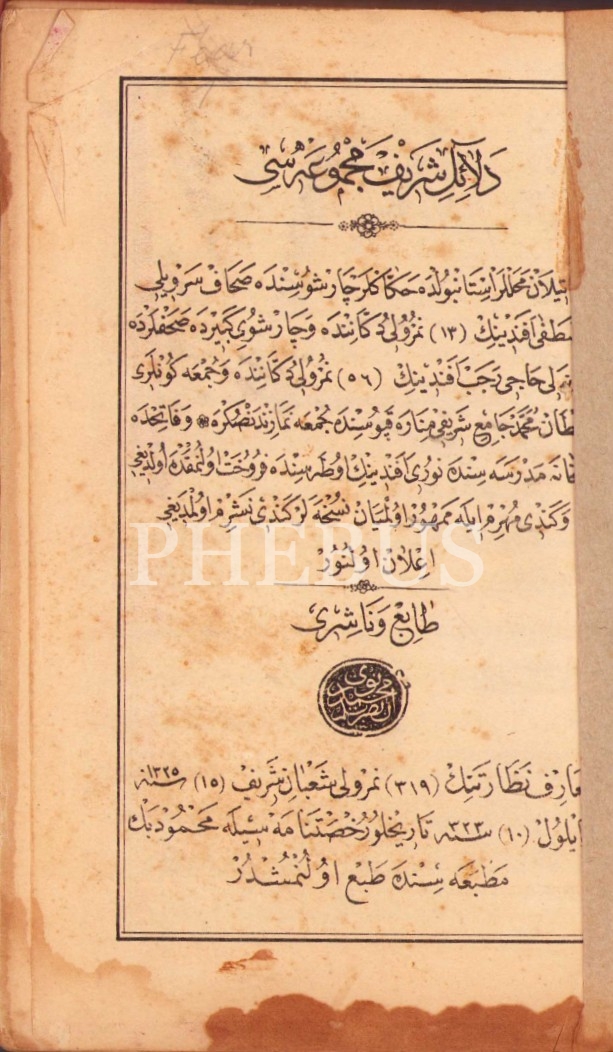 دَلَائِلِ شَرِيفْ مَجْمُوعَه سِى
محللر استانبولده حكاكلر چارشوسنده صحاف سرويلى
افندينك (١٣) نمرولى دكاننده و چارشوى كبيرده صحفلرده
حاجى رجب افندينك (٥٦) نمرولى دكاننده و جمعه كونلرى
محمد جامع شريفى مناره قپوسنده جمعه نمازندنصكره و فاتحده
مدرسه سنده نورى افندينك اوطه سنده فروخت اولنمقده اولديغى
و كندى مهرم ايله ممهور اولميان نسخه لر كندى نشرم اولمديغى
اعلان اولنور
PHEBUS
طابع و ناشرى
نظارتنك (٣١٩) نمرولى شعبان شريف (١٥) سنه ١٣٢٥
ايلول (١٠) سنه ٣٢٣ تاريخلو رخصتنامه سيله محمود بك
مطبعه سنده طبع اولنمشدر